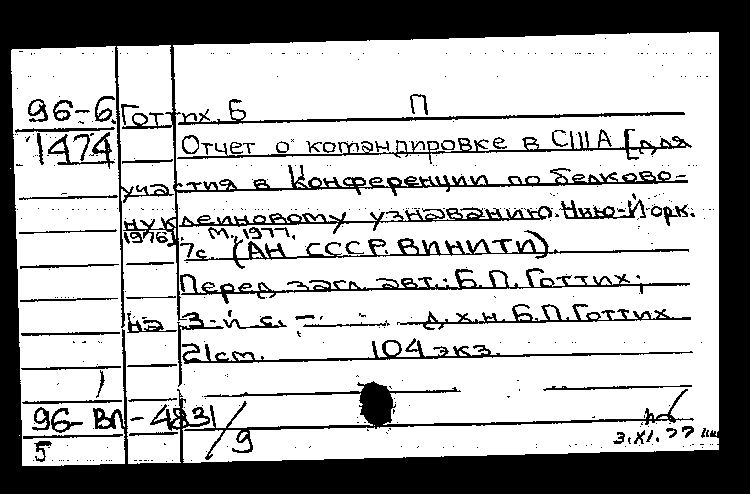 96-6 Готтих, Б П
1474 Отчет о командировке в США [для
участия в Конференции по белково-
нуклеиновому узнаванию. Нью-Йорк.
1976]. М., 1977.
7с. (АН СССР. ВИНИТИ).
Перед загл. авт.: Б.П. Готтих;
на 3-й с. – д.х.н. Б.П. Готтих
21см. 104 экз.
96-ВЛ-4831/9
5 3.XI.77